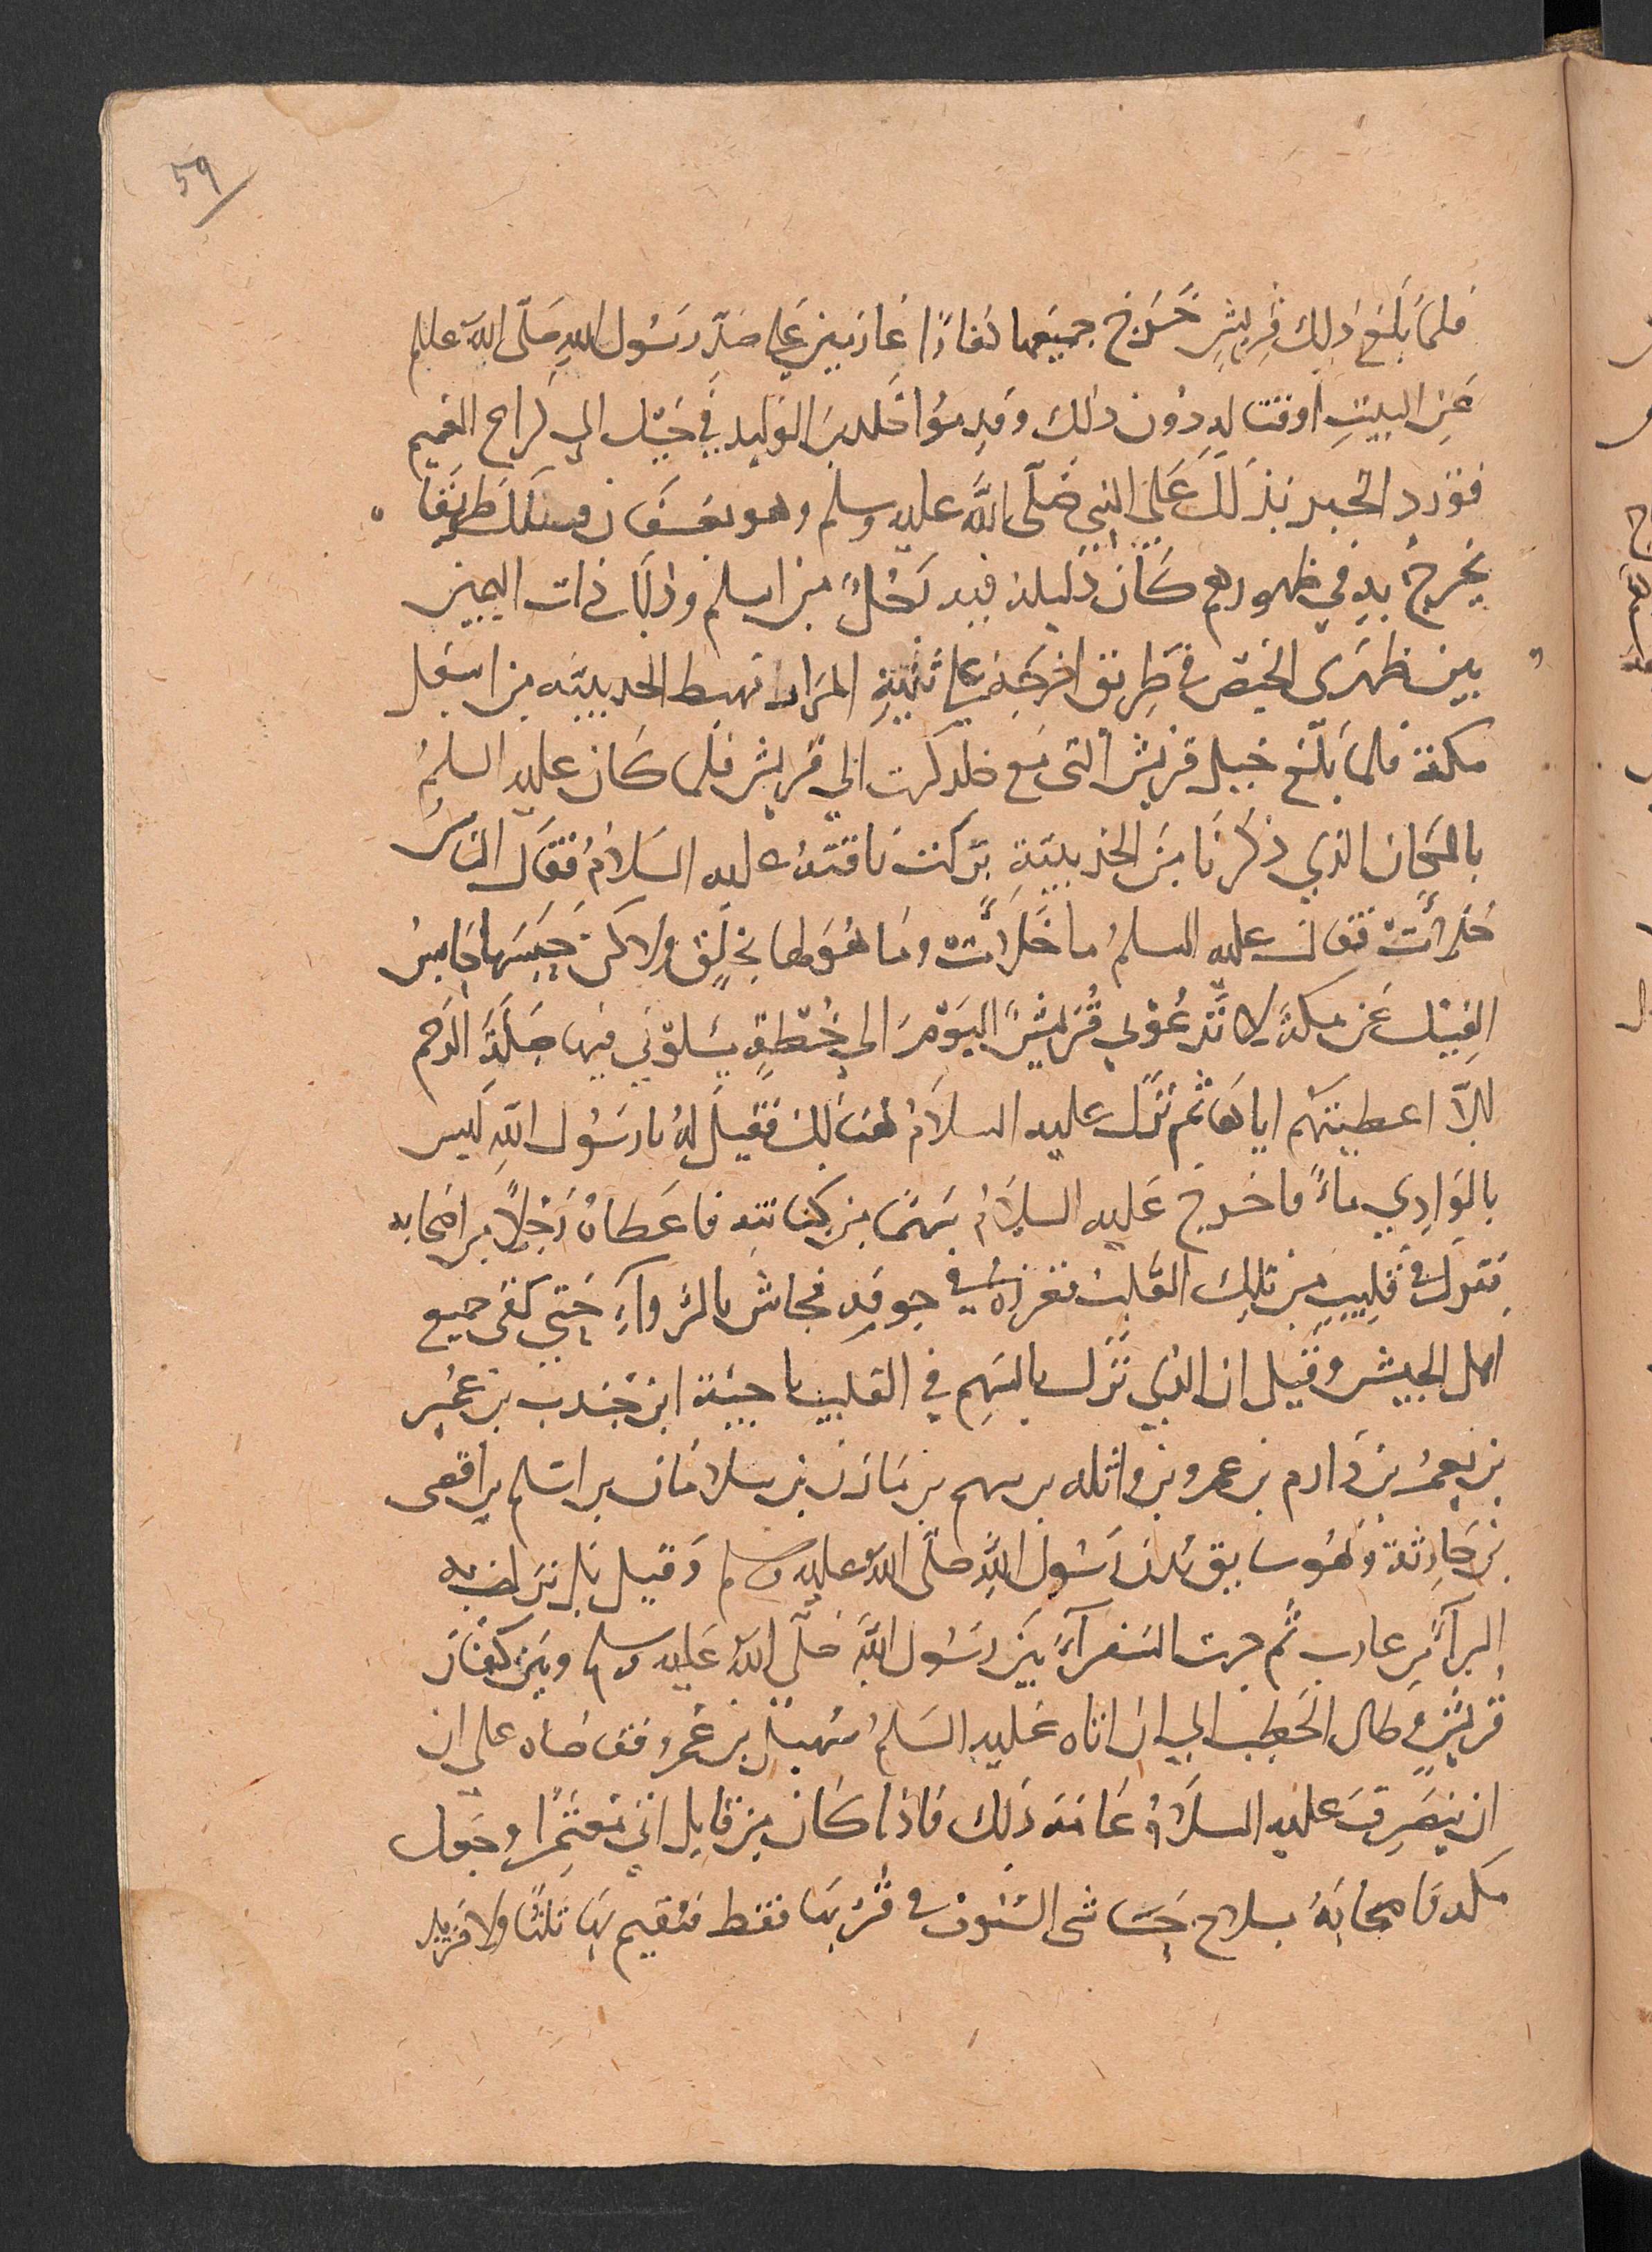 59
فلما بلغ ذلك قريش خرج جميعها نفارًا غازيين على صد رسول الله صلى الله عليه
عن البيت او قتاله دون ذلك وقدموا خلد بن الوليد في خيل الى كراع الغميم
فورد الخبر بذلك على النبي صلى الله عليه وسلم وهو بعسفان فسلك طريقا
يخرج به في ظهورهم كان دليله فيه رجلٌ من اسلم وذلك ذات اليمين
بين ظهرى الحمض في طريق اخرجه على ثنية المرار مهبط الحديبيّه من اسفل
مكة فلما بلغ خيل قريش التى مع خلد كرت الى قريش فلما كان عليه السلمُ
بالمكان الذي ذكرنا من الحديبية بركت ناقته عليه السلامُ فقال الناس
خلأت فقال عليه السلمُ ما خلأت وما هو لها بخلق ولاكن حبسها حابس
الفيل عن مكة لا تدعوني قريش اليوم الى خطةٍ يسلوني فيها صلة الرحم
الاّ اعطيتهم اياها ثم نزل عليه السلامُ هنالك فقيل له يا رسول الله ليس
بالوادي ماءٌ فاخرج عليه السلامُ سهمًا من كنانته فاعطاه رجلاً من اصحابه
فنزل في قليبٍ من تلك القلب فغرزه في جوفه فجاش بالروآء حتى كفى جميع
اهل الجيش وقيل ان الذي نزل بالسهم في القليب ناجية ابن جندب بن عمير
بن يعمر بن دارم بن عمرو بن واثله بن سهم بن مازن بن سلامان بن اسلم بن افصى
بن حارثة وهو سايق بدن رسول الله صلى الله عليه وسلم وقيل بل نزل به
البرآء بن عازب ثم جرت السفرآءُ بين رسول الله صلى الله عليه وسلم وبين كفار
قريشٍ وطال الخطب الى ان اتاه عليه السلمُ سهيل بن عمرو فقاضاه على ان
ان ينصرف عليه السلامُ عامه ذلك فاذا كان من قابل اتى معتمرًا ودخل
مكة فاصحابه بسلاح حاشى السيوف في قربها فقط فيقيم بها ثلثًا ولا مزيد